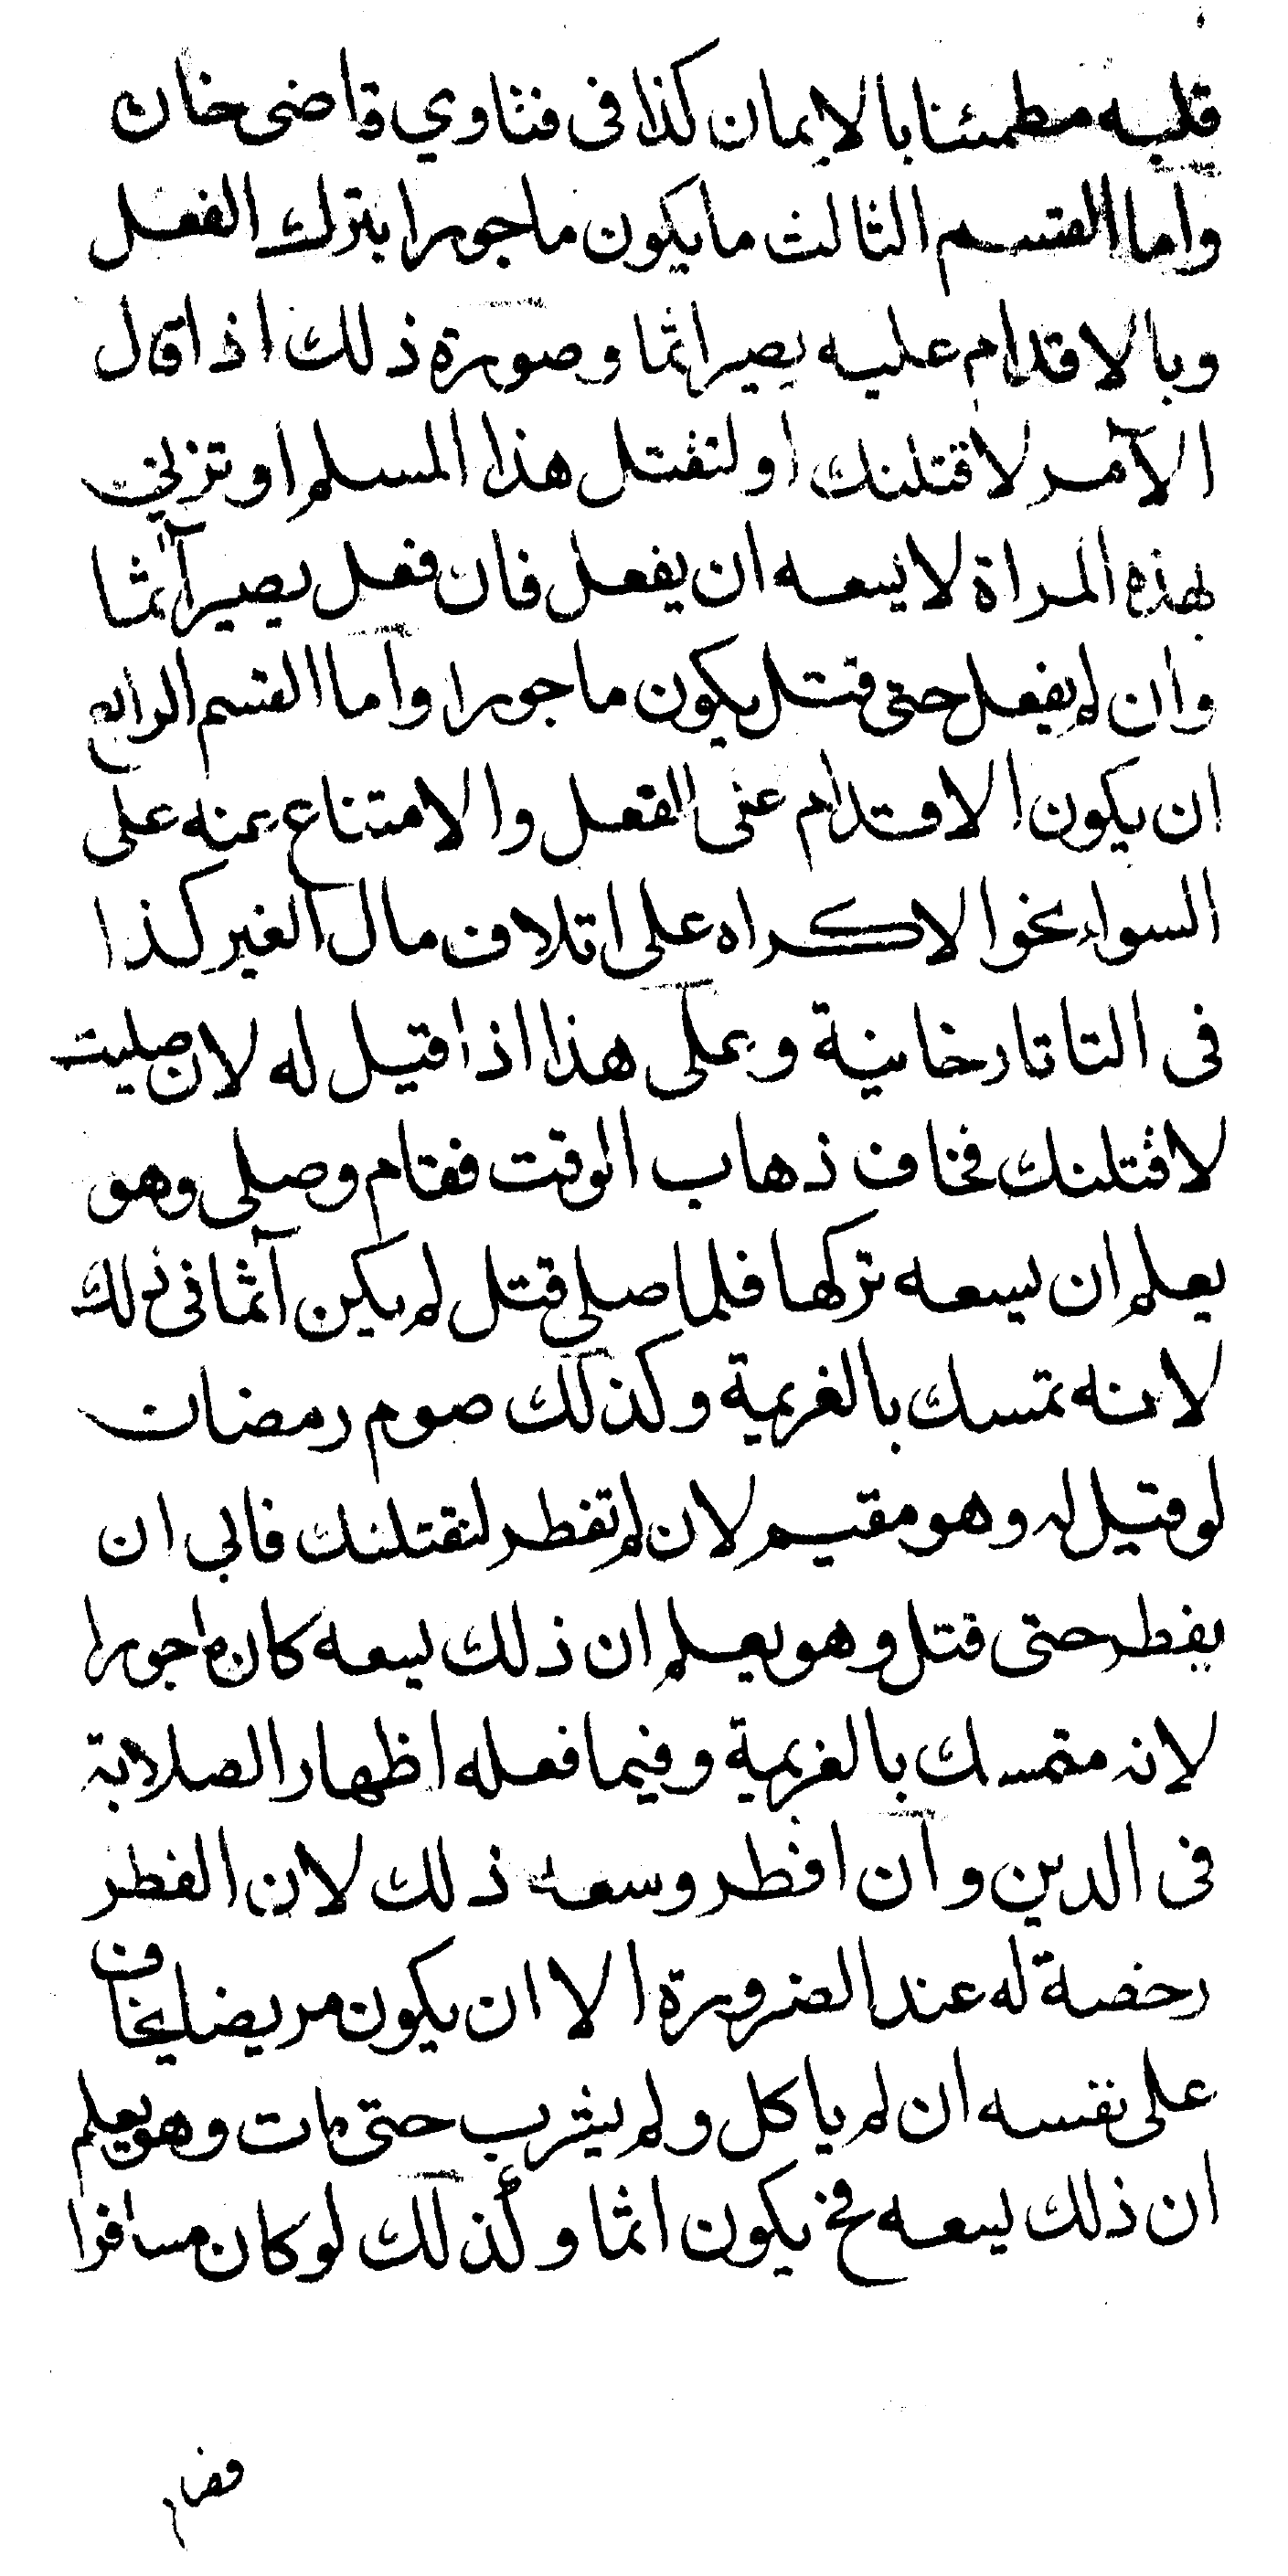 قلبه مطمئنا بالايمان كذا فى فتاوي قاضى خان
واما القسم الثالث ما يكون ماجورا بترك الفعل
وبالاقدام عليه يصير اثما وصورة ذلك اذا قال
الآمر لاقتلنك او لتقتل هذا المسلم او تزني
بهذه المراة لا يسعه ان يفعل فان فعل يصير آثما
وان لم يفعل حتى قتل يكون ماجورا واما القسم الرابع
ان يكون الاقدام على الفعل والامتناع عنه على
السواء نحو الاكراه على اتلاف مال الغير كذا
فى التاتارخانية وعلى هذا اذا قيل له لان صليت
لاقتلنك فخاف ذهاب الوقت فقام وصلى وهو
يعلم ان يسعه تركها فلما صلى قتل لم يكن آثما فى ذلك
لانه تمسك بالعزيمة وكذلك صوم رمضان
لو قيل له وهو مقيم لان لم تفطر لنقتلنك فابى ان
يفطر حتى قتل وهو يعلم ان ذلك يسعه كان ماجورا
لانه متمسك بالعزيمة وفيما فعله اظهار الصلابة
فى الدين وان افطر وسعه ذلك لان الفطر
رخصة له عند الضرورة الا ان يكون مريضا يخاف
على نفسه ان لم ياكل ولم يشرب حتى مات وهو يعلم
ان ذلك يسعه فح يكون اثما وكذلك لو كان مسافرا